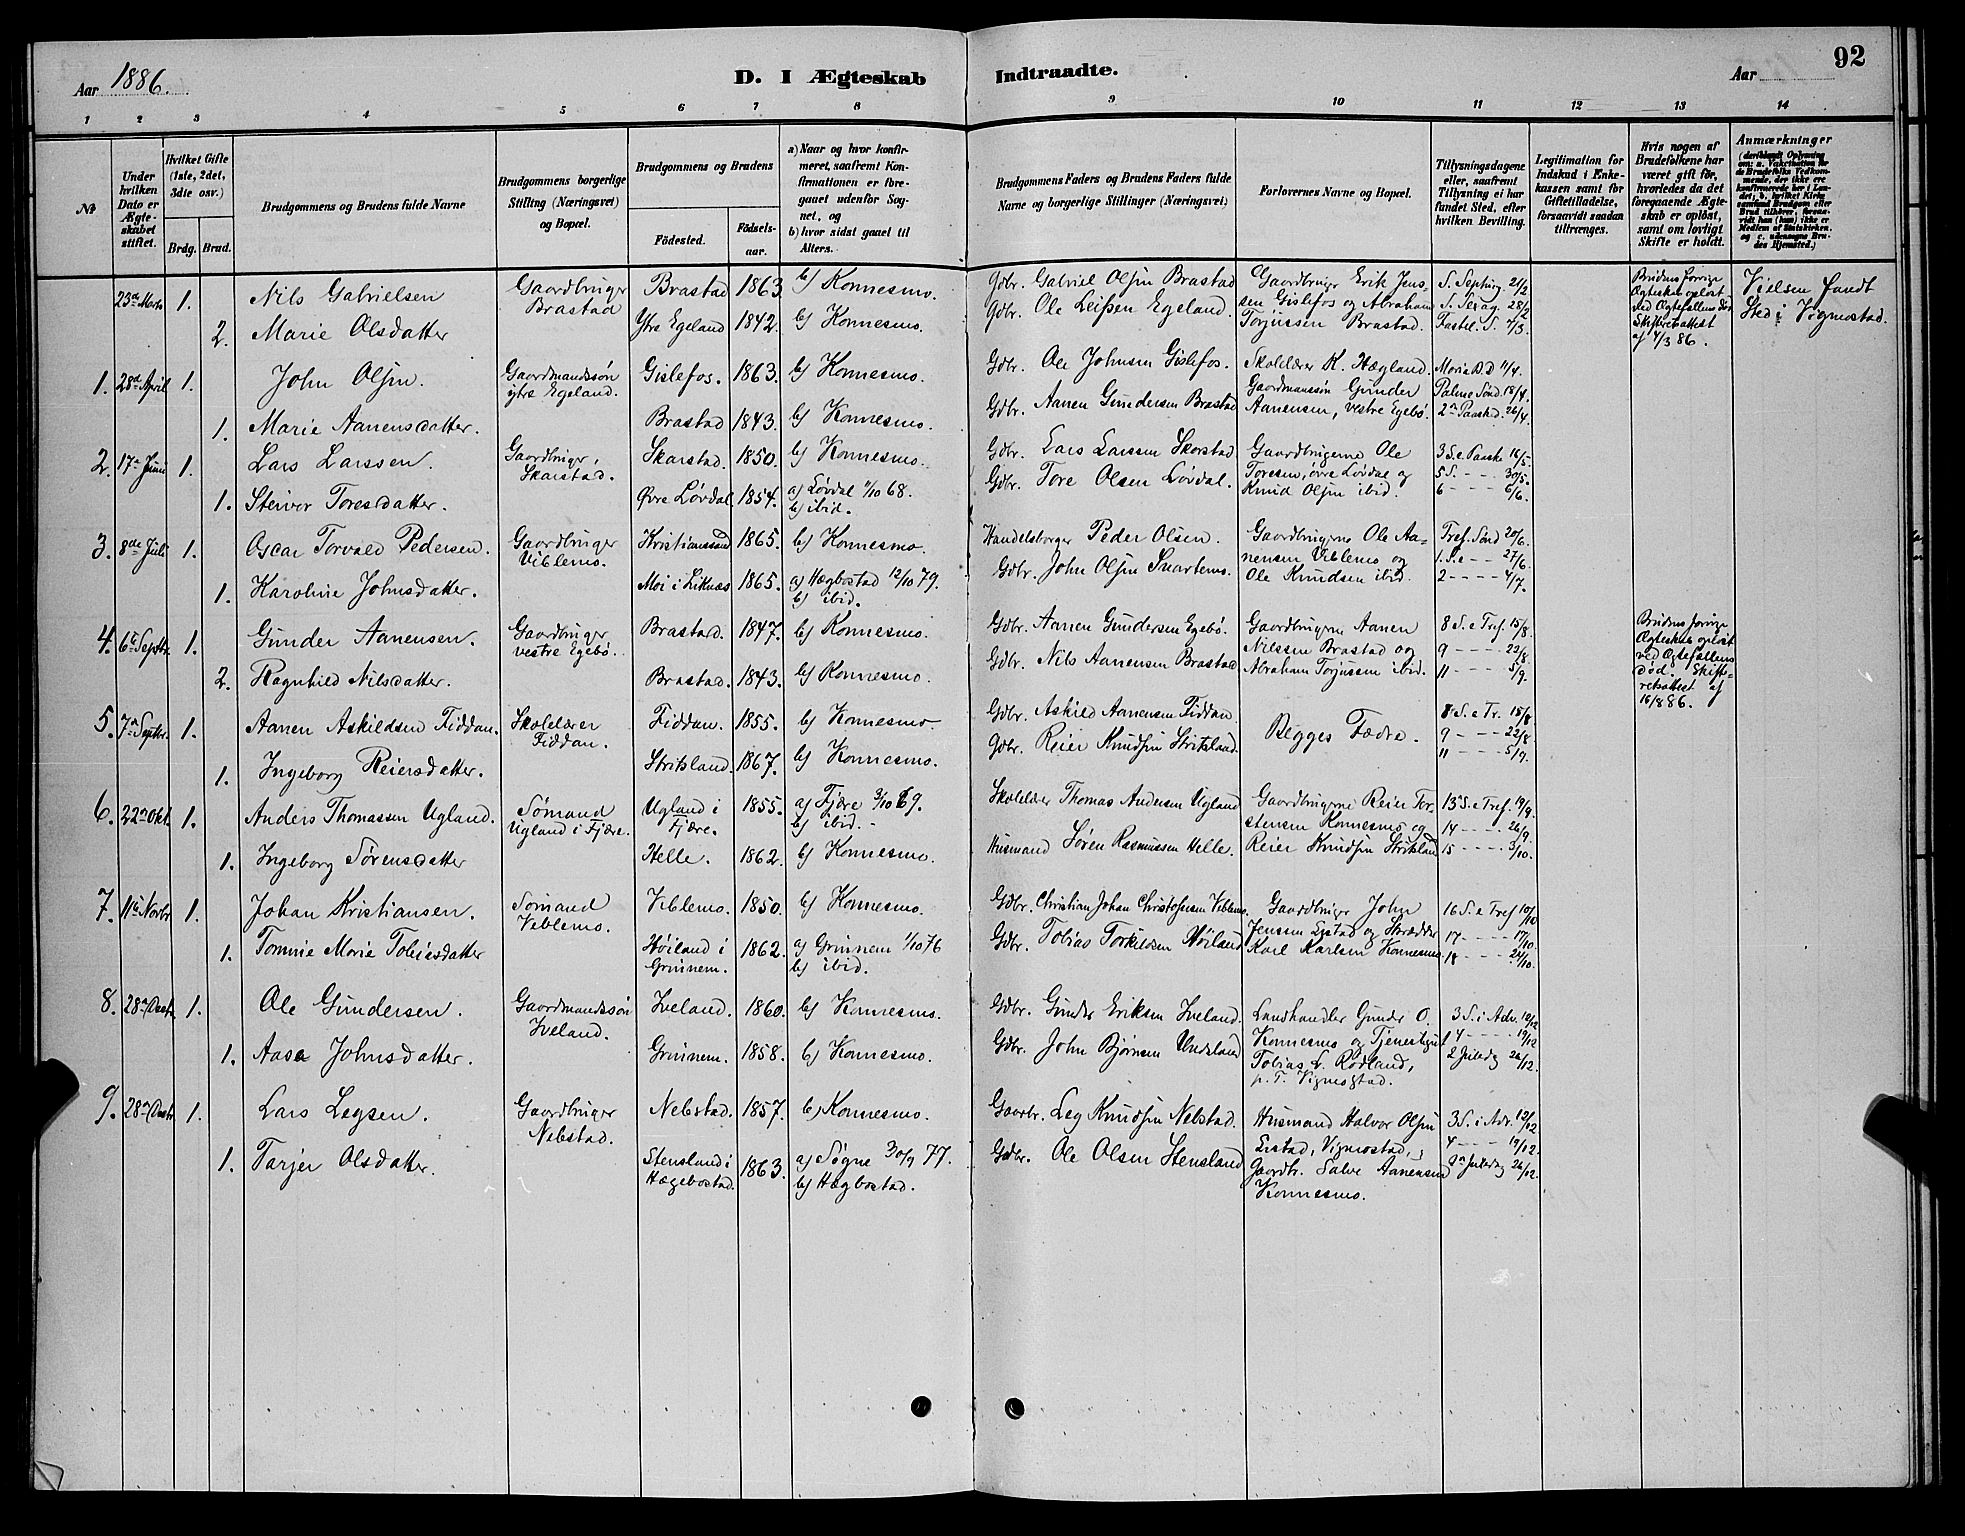 Aar 1886.
D. I Ægteskab Indtraadte.
Aar
92
1 2 3 4 5 6 7 8 9 10 11 12 13 14
No
Under hvilken Dato er Ægteskabet stiftet.
Hvilket Gifte (1ste, 2det, 3die osv.)
Brdg. Brud.
Brudgommens og Brudens fulde Navne
Brudgommens borgerlige Stilling (Næringsvei) og Bopæl.
Brudgommens og Brudens
Födested. Födselsaar.
a) Naar og hvor konfirmeret, saafremt Konfirmationen er foregaaet udenfor Sognet, og
b) hvor sidst gaaet til Alters.
Brudgommens Faders og Brudens Faders fulde Navne og borgerlige Stillinger (Næringsvei)
Forlovernes Navne og Bopæl.
Tillysningsdagene eller, saafremt Tillysning ei har fundet Sted, efter hvilken Bevilling.
Legitimation for Indskud i Enkekassen samt for Giftetilladelse, forsaavidt saadan tiltrænges.
Hvis nogen af Brudefolkene har været gift før, hvorledes da det foregaaende Ægteskab er oplöst, samt om lovligt Skifte er holdt.
Anmærkninger
23de Marts 1. Nils Gabrielsen Gaardbruger Brastad Brastad 1863. b) Konnesmo. Gdbr. Gabriel Olsen Brastad
2. Marie Olsdatter Ytre Egeland 1842. b) Konnesmo. Gdbr. Ole Leifsen Egeland.
Gaardbruger Erik Jenssen Gislefos og Abraham Torjussen Brastad.
S. Septuag. 21/2
S. Sexag. 28/2
Fastel. S. 7/3
Brudens forrige Ægteskab opløst ved Ægtefællens Død. Skifteretsattest af 4/3 86.
Vielsen fandt Sted i Vigmostad.
1. 28de April 1. John Olsen. Gaardmandssøn ytre Egeland. Gislefos. 1863. b) Konnesmo. Gdbr. Ole Johnsen Gislefos.
1. Marie Aanensdatter. Brastad 1843. b) Konnesmo. Gdbr. Aanen Gundersen Brastad
Skolelærer K. Hægland. Gaardmanssøn Gunder Aanensen, vestre Egebø.
Maria B. D 11/4.
Palme Sønd. 18/4.
2den Paaskd. 26/4.
2. 17de Juni 1. Lars Larssen. Gaardbruger, Skarstad. Skarstad. 1850. b) Konnesmo. Gdbr. Lars Larssen Skarstad
1. Steivor Toresdatter. Øvre Løvdal. 1854. a) Løvdal 1/10 68. b) ibid. Gdbr. Tore Olsen Løvdal.
Gaardbrugerne Ole Toresen, øvre Løvdal og Knud Olsen ibid.
3 S. e Paaske 16/5.
5 S. - - 30/5.
6 - - - 6/6.
3. 8de Juli 1. Oscar Torvald Pedersen. Gaardbruger Viblemo. Kristianssand 1865. b) Konnesmo. Handelsborger Peder Olsen.
1. Karoline Johnsdatter. Moi i Liknæs 1865. a) Hægbostad 12/10 79. b) ibid. Gdbr. John Olsen Snartemo.
Gaardbrugerne Ole Aanensen Viblemo og Ole Knudsen ibid.
Tref. Sønd 20/6.
1. S. e - - 27/6.
2 - - - - 4/7.
4. 6te Septbr. 1. Gunder Aanensen. Gaardbruger vestre Egebø. Brastad. 1847. b) Konnesmo. Gdbr. Aanen Gundersen Egebø.
2. Ragnhild Nilsdatter. Brastad. 1843. b) Konnesmo. Gdbr. Nils Aanensen Brastad
Gaardbrugerne Aanen Nilssen Brastad og Abraham Torjussen ibid.
8 S. e Tref. 15/8.
9 - - - - 22/8
11 - - - - 5/9.
Brudens forrige Ægteskab opløst ved Ægtefællens død. Skifteretsattest af 16/8 86.
5. 7de Septbr. 1. Aanen Askildsen Fiddan. Skolelærer Fiddan. Fiddan. 1855. b) Konnesmo. Gdbr. Askild Aanensen Fiddan.
1. Ingeborg Reiersdatter. Stritsland. 1867. b) Konnesmo. Gdbr. Reier Knudsen Stritsland.
Begges Fædre.
8 S. e Tr. 15/8
9 - - - - 22/8
11 - - - 5/9.
6. 22de Okt. 1. Anders Thomassen Ugland. Sømand Ugland i Fjære. Ugland i Fjære. 1855. a) Fjære 3/10 69. b) ibid. Skolelærer Thomas Andersen Ugland
1. Ingeborg Sørensdatter Helle. 1862. b) Konnesmo. Husmand Søren Rasmussen Helle.
Gaardbrugerne Reier Torstensen Konnesmo og Reier Knudsen Stritsland
13 S. e Tref. 19/9.
14 - - - - 26/9.
15 - - - - 3/10.
7. 11te Novbr 1. Johan Kristiansen. Sømand Viblemo. Viblemo. 1850. b) Konnesmo. Gdbr. Christian Johan Christofersen Viblemo.
1. Tomine Marie Tobiasdatter Høiland i Grinnem. 1862. a) Grinnem 1/10 76 b) ibid. Gdbr. Tobias Torkildsen Høiland
Gaardbruger John Jenssen Eistad og Skrædder Karl Karlsen Konnesmo
16 S. e Tref 10/10
17 - - - - 17/10.
18 - - - 24/10.
8. 28de Decbr. 1. Ole Gundersen. Gaardmandssøn Iveland. Iveland. 1860. b) Konnesmo. Gdbr. Gunder Eriksen Iveland.
1. Aase Johnsdatter. Grinnem. 1858. b) Konnesmo. Gdbr. John Bjørnsen Undsland
Landhandler Gunder O. Konnesmo og Tjenestegut Tobias L. Rødland, p. T. Vigmostad.
3 S. i Adv. 12/12
4 - - - - 19/12
2 Juledag 26/12.
9. 28de Decbr 1. Lars Legsen. Gaardbruger Nebstad. Nebstad. 1857. b) Konnesmo. Gaardbr. Leg Knudsen Nebstad.
1. Tarjer Olsdatter. Stensland i Hægebostad. 1863. a) Søgne 30/9 77. b) Hægbostad. Gdbr. Ole Olsen Stensland
Husmand Halvor Olsen Eistad, Vigmostad, Gaardbr. Salve Aanensen Konnesmo.
3 S. i Adv. 12/12
4 - - - - 19/12.
2den Juledag 26/12.